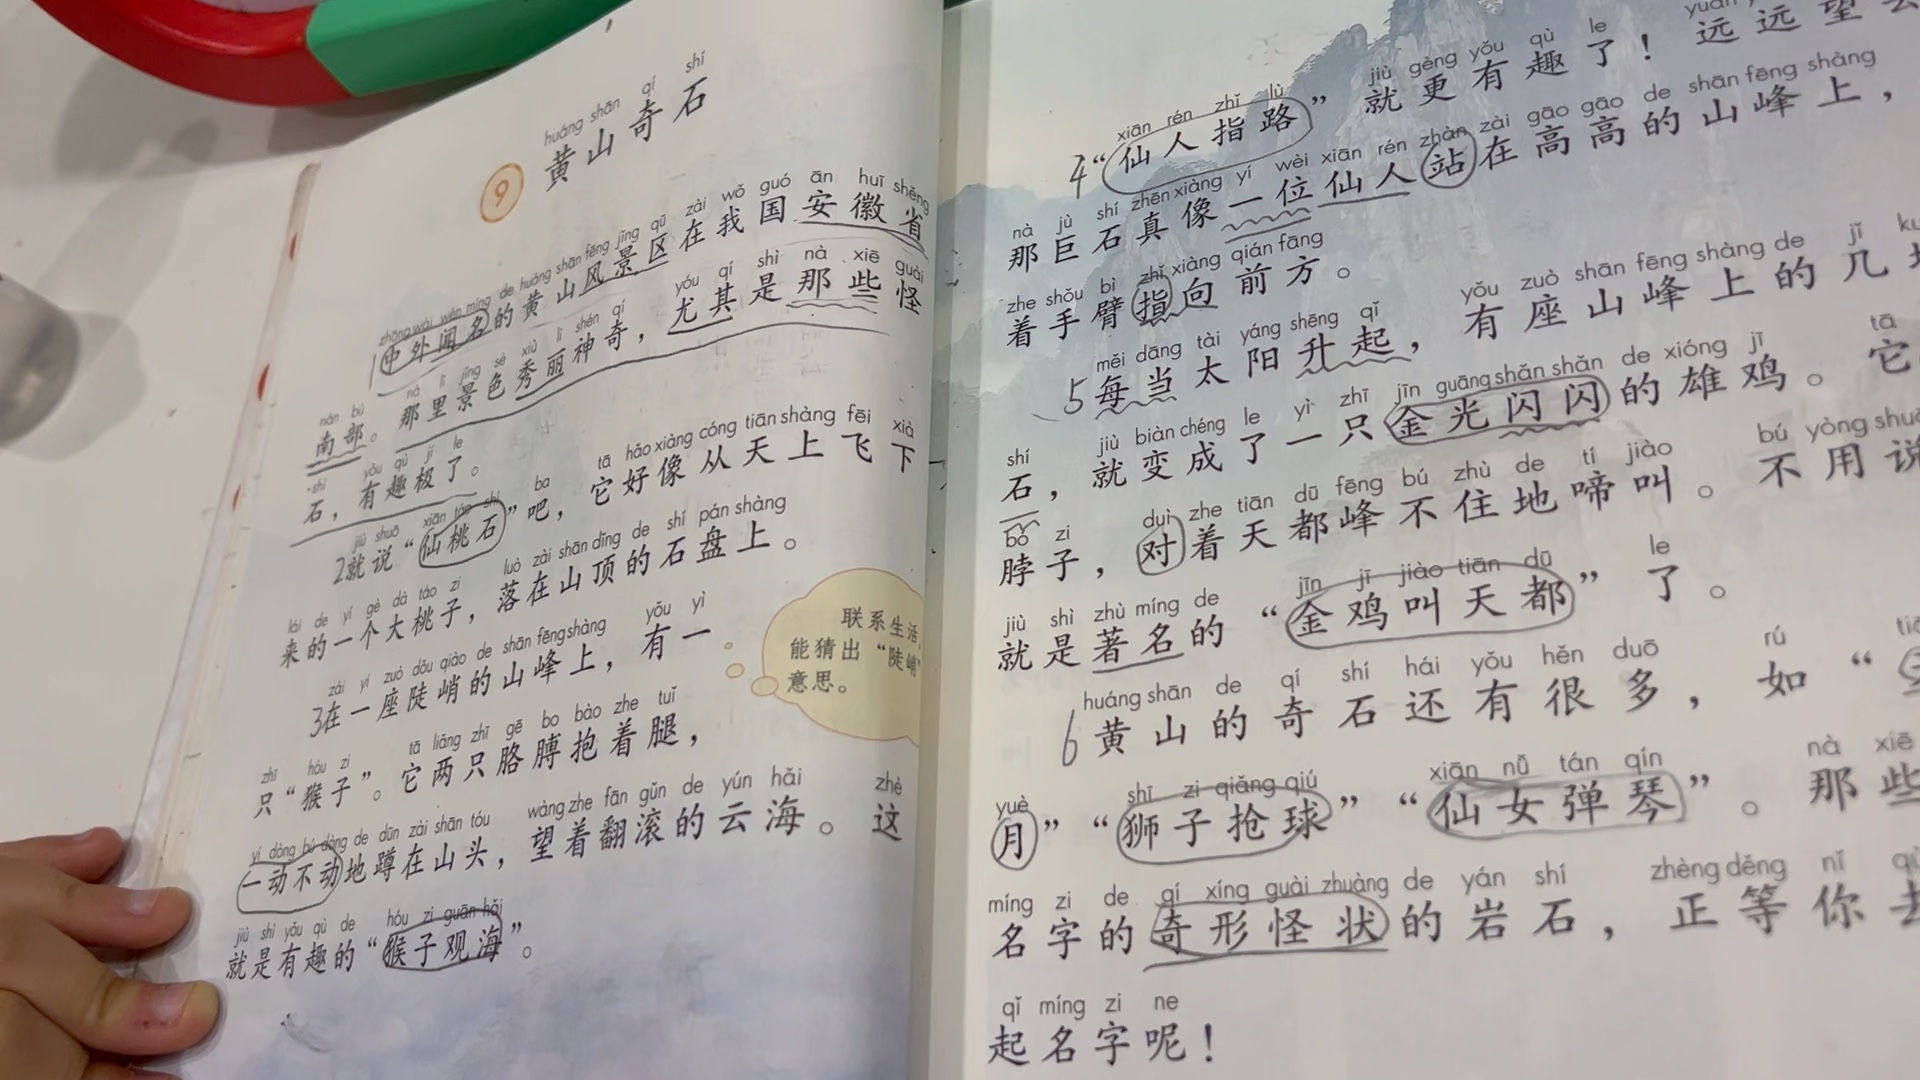 huáng shān qí shí
9 黄山奇石
zhōng wài wén míng de huáng shān fēng jǐng qū zài wǒ guó ān huī shěng
1中外闻名的黄山风景区在我国安徽省
nán bù nà lǐ jǐng sè xiù lì shén qí yóu qí shì nà xiē guài
南部。那里景色秀丽神奇，尤其是那些怪
shí yǒu qù jí le
石，有趣极了。
jiù shuō xiān táo shí ba tā hǎo xiàng cóng tiān shàng fēi xià
2就说“仙桃石”吧，它好像从天上飞下
lái de yí gè dà táo zi luò zài shān dǐng de shí pán shàng
来的一个大桃子，落在山顶的石盘上。
zài yí zuò dǒu qiào de shān fēng shàng yǒu yì
3在一座陡峭的山峰上，有一
zhī hóu zi tā liǎng zhī gē bo bào zhe tuǐ
只“猴子”。它两只胳膊抱着腿，
yí dòng bú dòng de dūn zài shān tóu wàng zhe fān gǔn de yún hǎi zhè
一动不动地蹲在山头，望着翻滚的云海。这
jiù shì yǒu qù de hóu zi guān hǎi
就是有趣的“猴子观海”。
联系生活，
能猜出“陡峭”
意思。
xiān rén zhǐ lù jiù gèng yǒu qù le yuǎn
4“仙人指路”就更有趣了！远远望去
nà jù shí zhēn xiàng yí wèi xiān rén zhàn zài gāo gāo de shān fēng shàng
那巨石真像一位仙人站在高高的山峰上，
zhe shǒu bì zhǐ xiàng qián fāng
着手臂指向前方。
měi dāng tài yáng shēng qǐ yǒu zuò shān fēng shàng de jǐ
5每当太阳升起，有座山峰上的几
shí jiù biàn chéng le yì zhī jīn guāng shǎn shǎn de xióng jī tā
石，就变成了一只金光闪闪的雄鸡。它
bó zi duì zhe tiān dū fēng bú zhù de tí jiào bú yòng shuō
脖子，对着天都峰不住地啼叫。不用说
jiù shì zhù míng de jīn jī jiào tiān dū le
就是著名的“金鸡叫天都”了。
huáng shān de qí shí hái yǒu hěn duō rú
6黄山的奇石还有很多，如“
yuè shī zi qiǎng qiú xiān nǚ tán qín nà xiē
月”“狮子抢球”“仙女弹琴”。那些
míng zi de qí xíng guài zhuàng de yán shí zhèng děng nǐ qù
名字的奇形怪状的岩石，正等你去
qǐ míng zi ne
起名字呢！